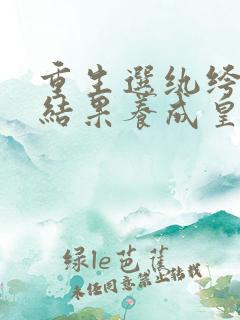 重生選纨绔
結果養成皇
绿le芭蕉
未经同意禁止转载